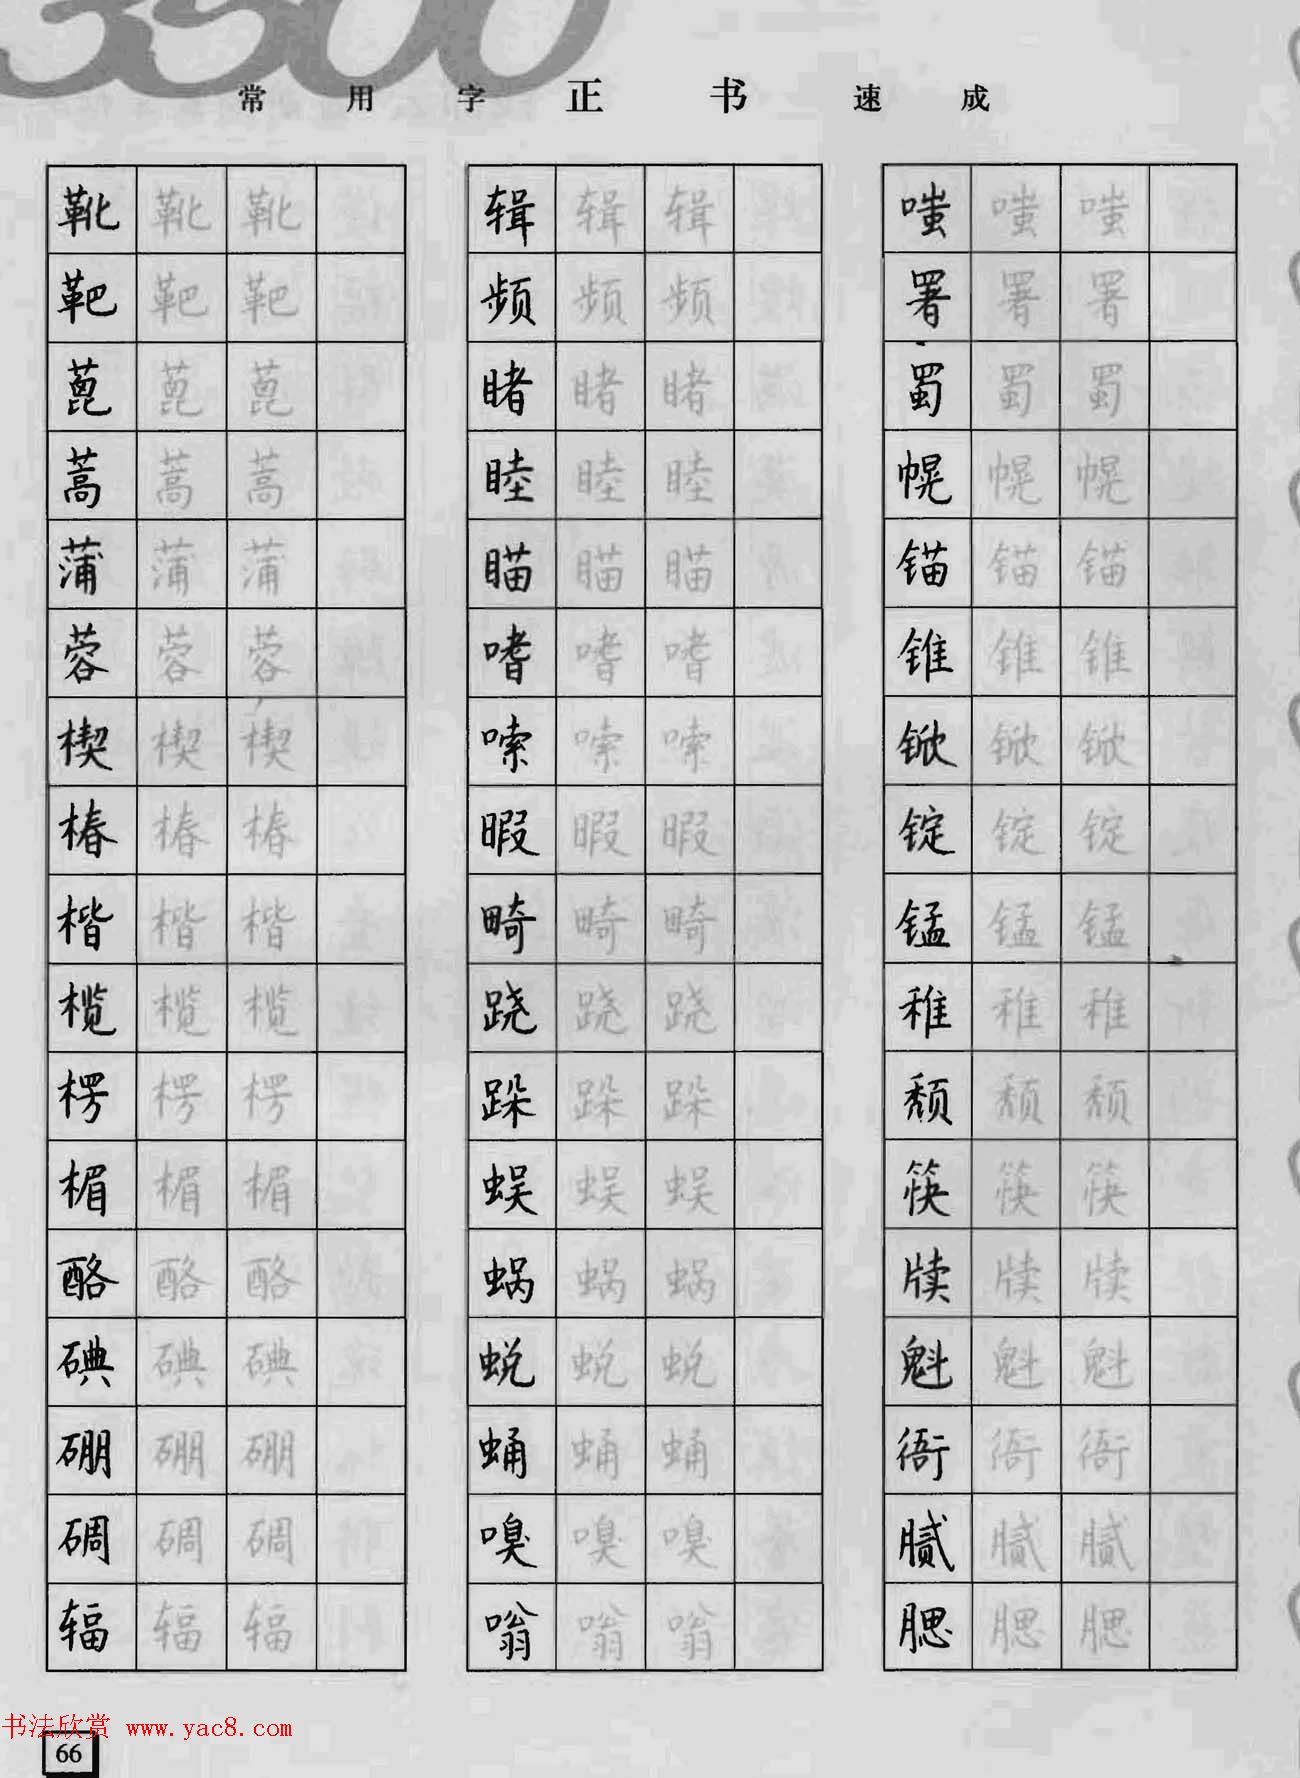 3500
常用字正书速成
靴 靴 靴 辑 辑 辑 嗤 嗤 嗤
靶 靶 靶 频 频 频 署 署 署
蓖 蓖 蓖 睹 睹 睹 蜀 蜀 蜀
蒿 蒿 蒿 睦 睦 睦 幌 幌 幌
蒲 蒲 蒲 瞄 瞄 瞄 锚 锚 锚
蓉 蓉 蓉 嗜 嗜 嗜 锥 锥 锥
楔 楔 楔 嗦 嗦 嗦 锨 锨 锨
椿 椿 椿 暇 暇 暇 锭 锭 锭
楷 楷 楷 畸 畸 畸 锰 锰 锰
榄 榄 榄 跷 跷 跷 稚 稚 稚
楞 楞 楞 跺 跺 跺 颓 颓 颓
楣 楣 楣 蜈 蜈 蜈 筷 筷 筷
酪 酪 酪 蜗 蜗 蜗 牍 牍 牍
碘 碘 碘 蜕 蜕 蜕 魁 魁 魁
硼 硼 硼 蛹 蛹 蛹 衙 衙 衙
碉 碉 碉 嗅 嗅 嗅 腻 腻 腻
辐 辐 辐 嗡 嗡 嗡 腮 腮 腮
书法欣赏 www.yac8.com
66